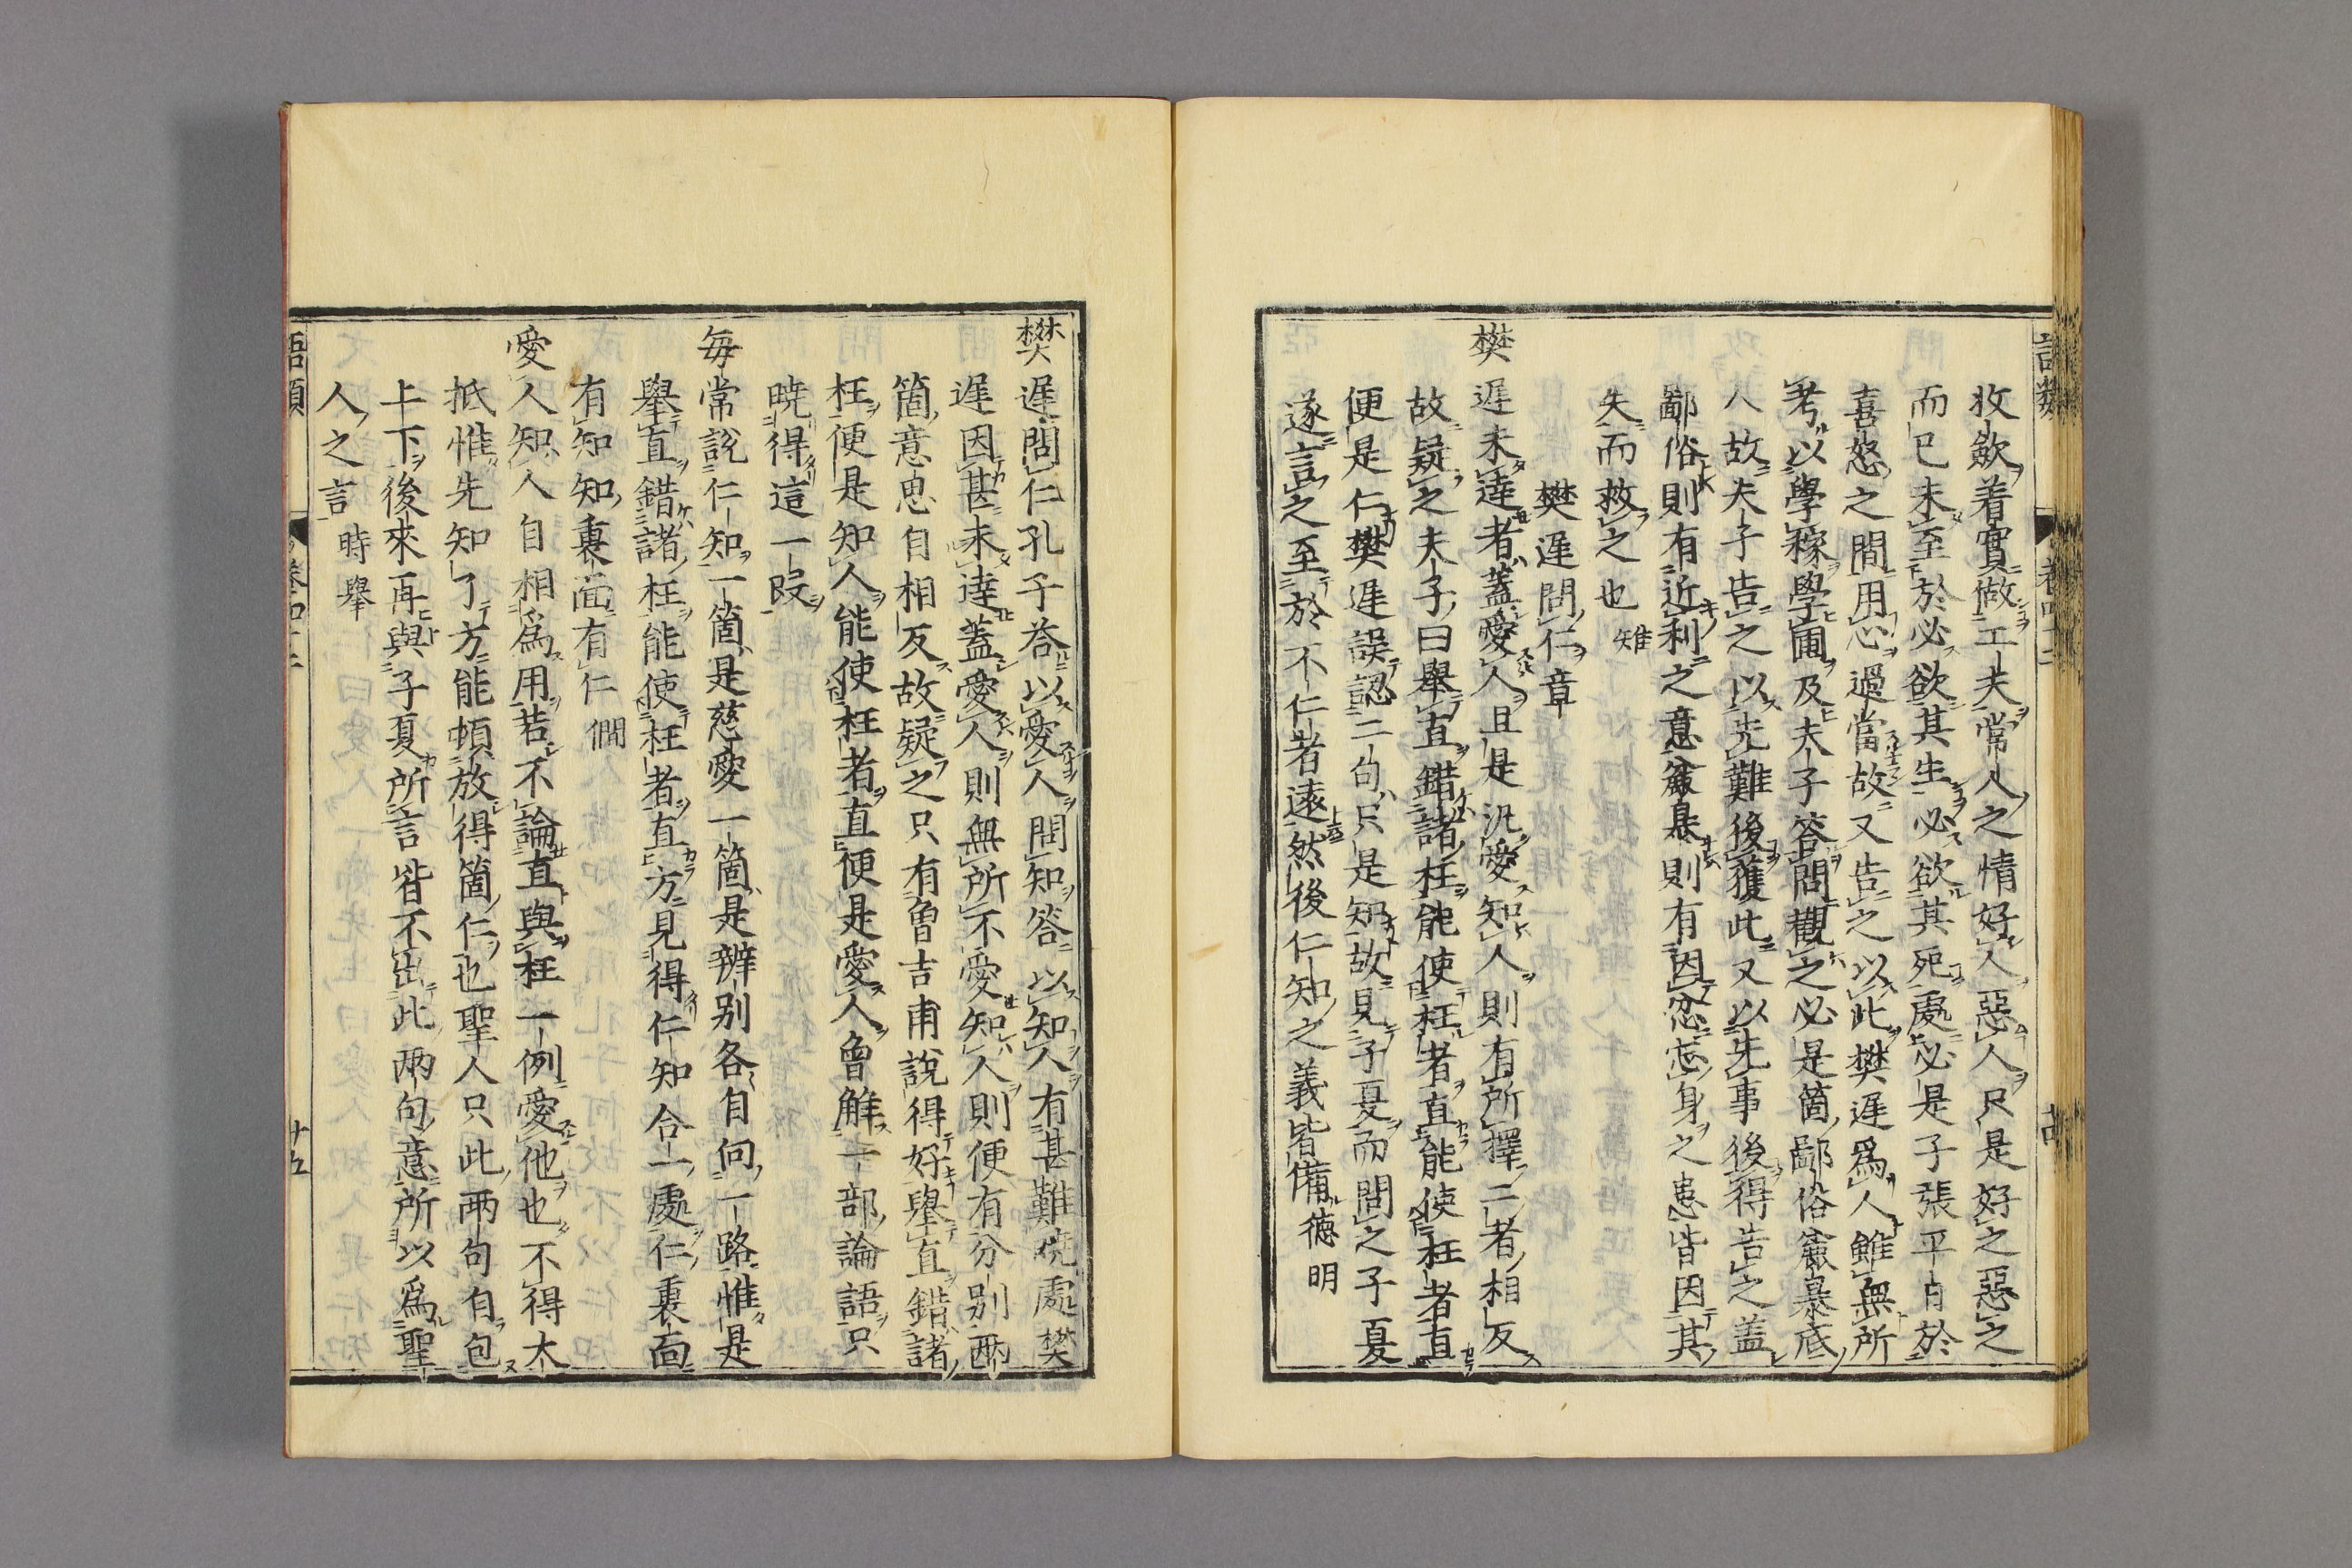 收歛着實做工夫常人之情好人惡人只是好之惡之
而已未至於必欲其生必欲其死處必是子張平日於
喜怒之間用心過當故又告之以此樊遲爲人雖無所
考以學稼學圃及夫子答問觀之必是箇鄙俗麄暴底
人故夫子告之以先難後獲此又以先事後得告之蓋
鄙俗則有近利之意麄暴則有因忿忘身之患皆因其
失而救之也 雉
樊遲問仁章
樊遲未達者蓋愛人且是汎愛知人則有所擇二者相反
故疑之夫子曰舉直錯諸枉能使枉者直能使枉者直
便是仁樊遲誤認二句只是知故見子夏而問之子夏
遂言之至於不仁者遠然後仁知之義皆備 德明
樊遲問仁孔子荅以愛人問知答以知人有甚難曉處樊
遲因甚未達蓋愛人則無所不愛知人則便有分別兩
箇意思自相反故疑之只有曾吉甫說得好舉直錯諸
枉便是知人能使枉者直便是愛人曾解一部論語只
暁得這一段
每常說仁知一箇是慈愛一箇是辨别各自向一路惟是
舉直錯諸枉能使枉者直方見得仁知合一處仁裏面
有知知裏面有仁 僩
愛人知人自相爲用若不論直與枉一例愛他也不得大
抵惟先知了方能頓放得箇仁也聖人只此兩句自包
上下後來再與子夏所言皆不出此兩句意所以爲聖
人之言 時舉
語類 卷四十二 十五